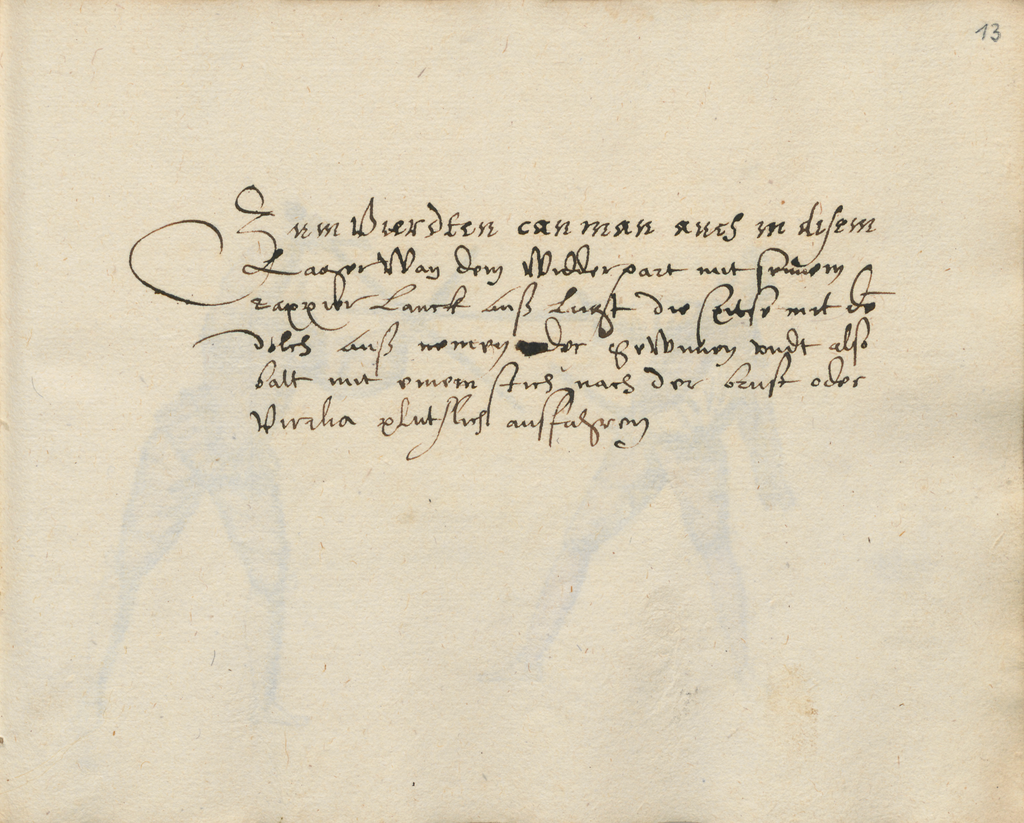 13
Zum Vierdten can man auch in disem
Laager Wan dem Widderpart mit seinem
rappier Lanck auß Ligt die spitse mit dē
dolch auß nemen oder gewinnen vndt also
balt mit einem stich nach der brust oder
plutslich ausfahren